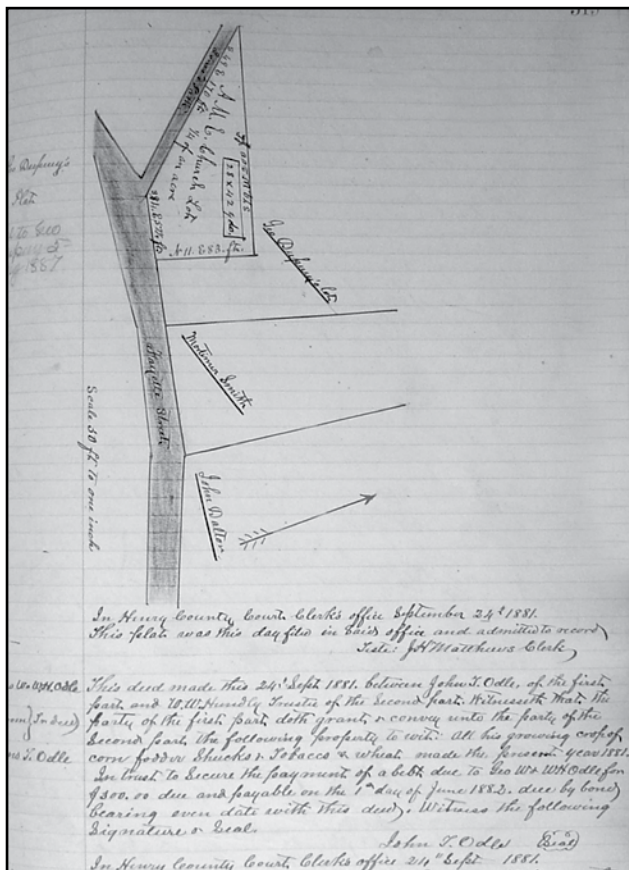 A. M. E. Church Lot
1/4 of an acre
N 11. E 83. ft.
Geo Dupuy's lot
Mortimer Smith
Fayette Street
Scale 50 ft to one inch
John Dalton
Dupuy's
Plat
to Geo
1887
In Henry County Court Clerk's office September 24th 1881.
This plat was this day filed in said office and admitted to record
Teste: J H Matthews Clerk
W. H. Odle
This deed made this 24th Sept 1881. between John T. Odle, of the first
part and W. W. Hundly Trustee of the Second part. Witnesseth that the
party of the first part doth grant & convey unto the party of the
Second part the following property to wit: All his growing crop of
corn fodder Shucks & Tobacco & wheat made the present year 1881.
In trust to Secure the payment of a debt due to Geo W & WH Odle for
$300.00 due and payable on the 1st day of June 1882. due by bond
bearing even date with this deed. Witness the following
Signature & Seal.
In deed
T. Odle
John T. Odle (Seal)
In Henry County Court Clerk's office 24th Sept 1881.